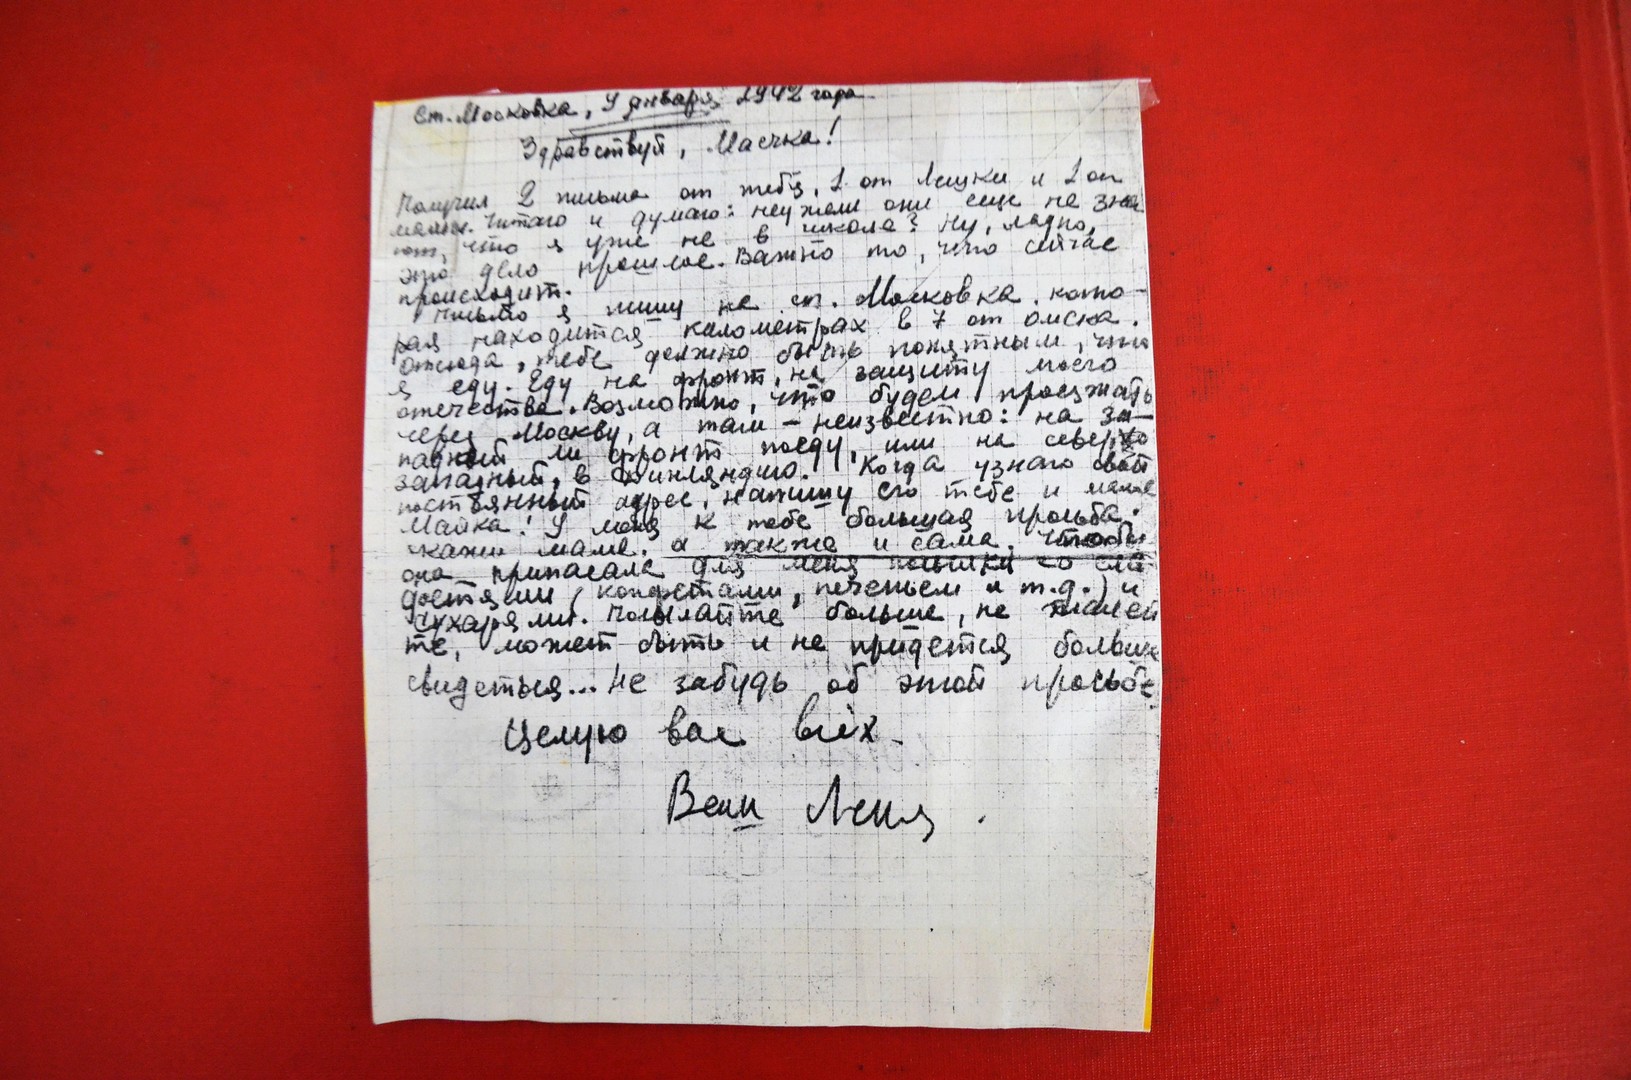 Ст. Московка, 9 января 1942 года
Здравствуй, Маечка!
Получил 2 письма от тебя, 1 от Лешки и 1 от
мамы. Читаю и думаю: неужели они еще не зна
ют, что я уже не в школе? Ну, ладно,
это дело прошлое. Важно то, что сейчас
происходит.
Письмо я пишу на ст. Московка, кото-
рая находится километрах в 7 от Омска.
Отсюда, тебе должно быть понятным, что
я еду. Еду на фронт, на защиту моего
отечества. Возможно, что будем проезжать
через Москву, а там – неизвестно: на за-
падный ли фронт поеду, или на северо
западный, в Финляндию. Когда узнаю свой
постоянный адрес, напишу его тебе и маме
Майка! У меня к тебе большая просьба.
скажи маме, а также и сама, чтобы
она припасала для меня посылки со сла
достями (конфетами, печеньем и т.д.) и
сухарями. Посылайте больше, не жалей
те, может быть и не придется больше
свидеться... Не забудь об этой просьбе.
Целую вас всех.
Ваш Леня.